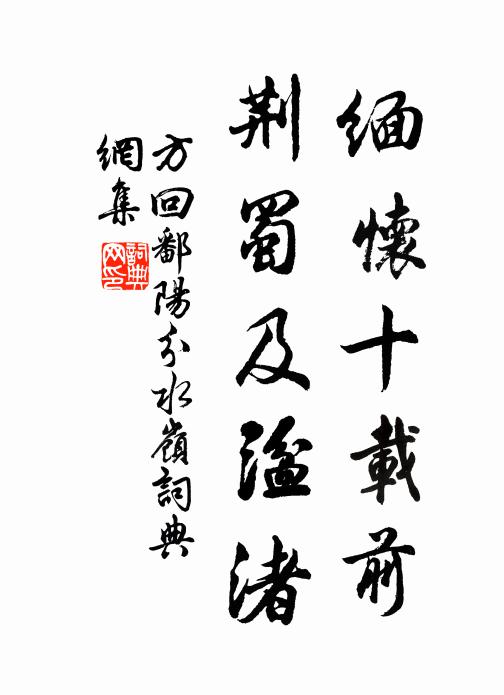 緬懷十載前
荆蜀及湓渚
方回鄱陽分水嶺詞典
網集
詞典
网印